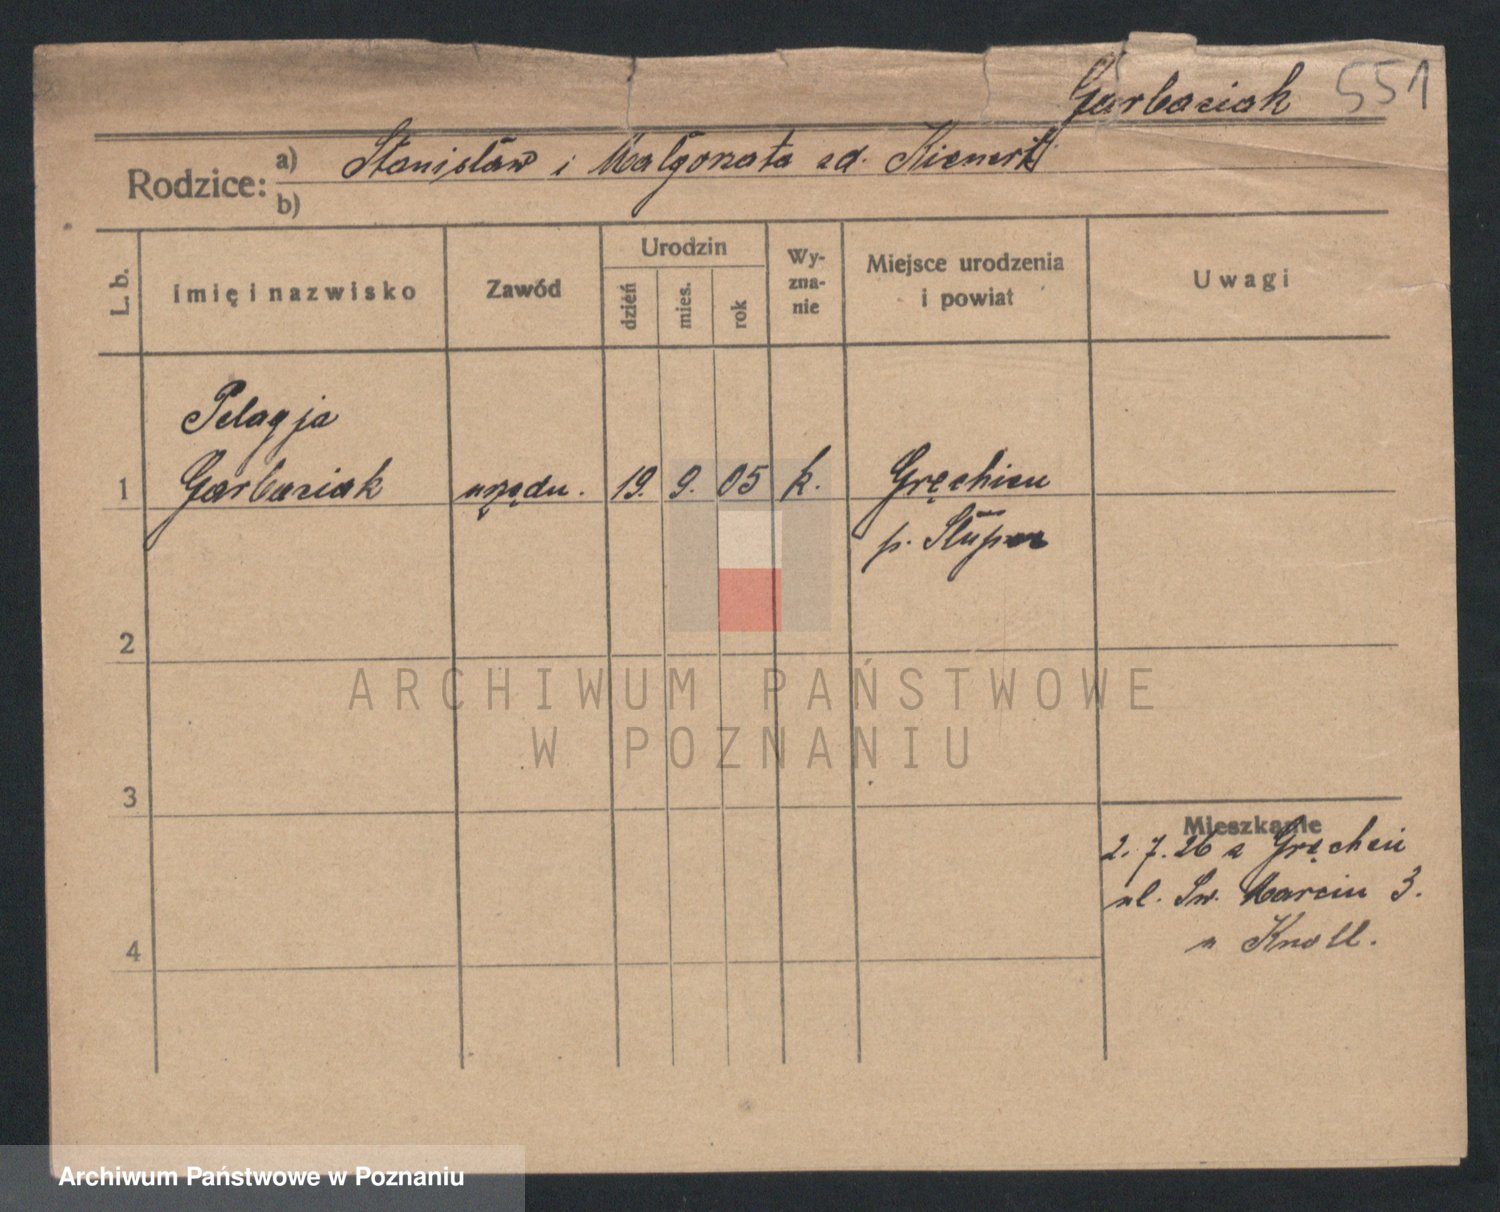 Garbaciak 551
Rodzice: a) Stanisław i Małgorzata zd.
b)
L. b.
imię i nazwisko
Zawód
Urodzin
dzień
mies.
rok
Wy-
zna-
nie
Miejsce urodzenia
i powiat
Uwagi
Pelagja
1 Garbaciak urzędn. 19. 9. 05 k.
p. Słupca
2
3
4
Mieszkanie
2. 7. 26 z
ul. Św. Marcin 3.
u Knoll.
ARCHIWUM PAŃSTWOWE
W POZNANIU
Archiwum Państwowe w Poznaniu